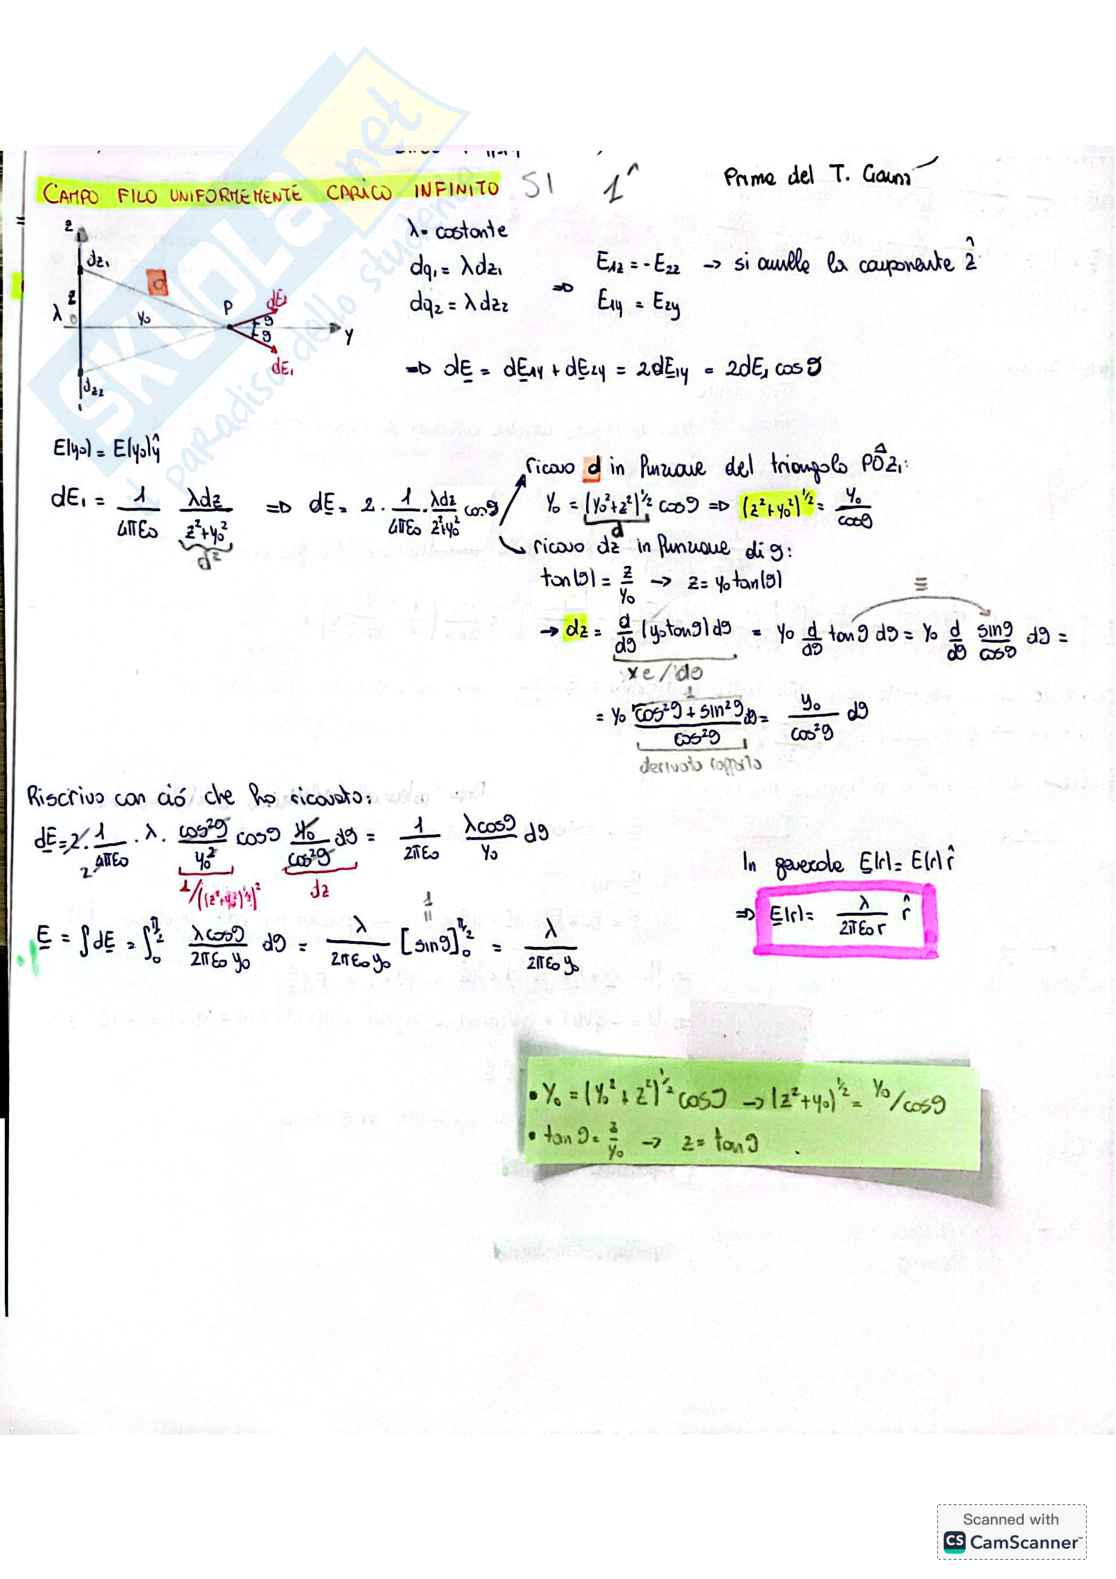 CAMPO FILO UNIFORMEMENTE CARICO INFINITO SI 1^
Prima del T. Gauss
z
dz₁
d
z
λ
0
y₀
P
dE₂
θ
θ
dE₁
y
dz₂
λ = costante
dq₁ = λdz₁
dq₂ = λdz₂
⇒ E₁z = -E₂z → si annulla la componente ẑ
E₁y = E₂y
⇒ dE = dE₁y + dE₂y = 2dE₁y = 2dE₁ cosθ
E(y₀) = E(y₀)ŷ
dE₁ = 1/4πε₀ λdz/(z²+y₀²) ⇒ dE = 2 · 1/4πε₀ · λdz/(z²+y₀²) cosθ
d²
ricavo d in funzione del triangolo PÔZ₁:
y₀ = (y₀²+z²)^½ cosθ ⇒ (z²+y₀²)^½ = y₀/cosθ
d
ricavo dz in funzione di θ:
tan(θ) = z/y₀ → z = y₀ tan(θ)
→ dz = d/dθ (y₀ tanθ) dθ = y₀ d/dθ tanθ dθ = y₀ d/dθ sinθ/cosθ dθ =
= y₀ (cos²θ + sin²θ)/cos²θ dθ = y₀/cos²θ dθ
1
derivata rapporto
Riscrivo con ciò che ho ricavato:
dE = 2 · 1/4πε₀ · λ · cos²θ/y₀² cosθ y₀/cos²θ dθ = 1/2πε₀ λcosθ/y₀ dθ
2
1/((z²+y₀²)^½)²
dz
E = ∫dE = ∫₀^π/2 λcosθ/2πε₀y₀ dθ = λ/2πε₀y₀ [sinθ]₀^π/2 = λ/2πε₀y₀
1
In generale E(r) = E(r) r̂
⇒ E(r) = λ/2πε₀r r̂
• y₀ = (y₀² + z²)^½ cosθ → (z²+y₀)^½ = y₀/cosθ
• tanθ = z/y₀ → z = tanθ
SKUOLA.net
il paradiso dello studente
Scanned with
CS CamScanner